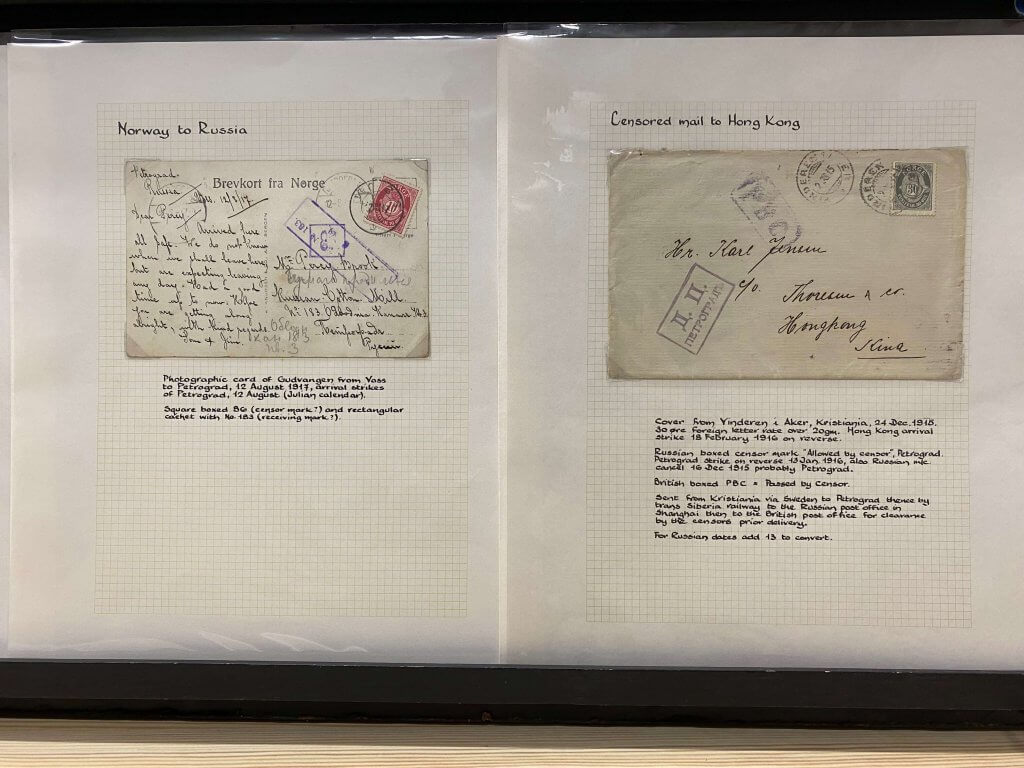 Norway to Russia
Brevkort fra Norge
Petrograd
Russia
12/8/17.
Dear Percy
Arrived here
all safe. We do not know
when we shall leave here
but are expecting leaving
any day. Had a good
time up to now. Hope
you are getting along
alright, with kind regards
Tom & Jim.
Mr. Percy
Russian Cotton Mill
No. 183
Photographic card of Gudvangen from Voss
to Petrograd, 12 August 1917, arrival strikes
of Petrograd, 12 August (Julian calendar).
Square boxed 86 (censor mark?) and rectangular
cachet with No. 183 (receiving mark?).
Censored mail to Hong Kong
30
Hr. Karl Jensen
c/o. Thoresen & co.
Hongkong
Kina
Д. Ц.
ПЕТРОГРАДЪ
Cover from Vinderen i Aker, Kristiania, 24 Dec. 1915.
30 øre foreign letter rate over 20gm. Hong Kong arrival
strike 18 February 1916 on reverse.
Russian boxed censor mark "Allowed by censor", Petrograd.
Petrograd strike on reverse 13 Jan. 1916, also Russian m/c.
cancel 16 Dec 1915 probably Petrograd.
British boxed PBC = Passed by Censor.
Sent from Kristiania via Sweden to Petrograd thence by
trans Siberia railway to the Russian post office in
Shanghai then to the British post office for clearance
by the censors prior delivery.
For Russian dates add 13 to convert.